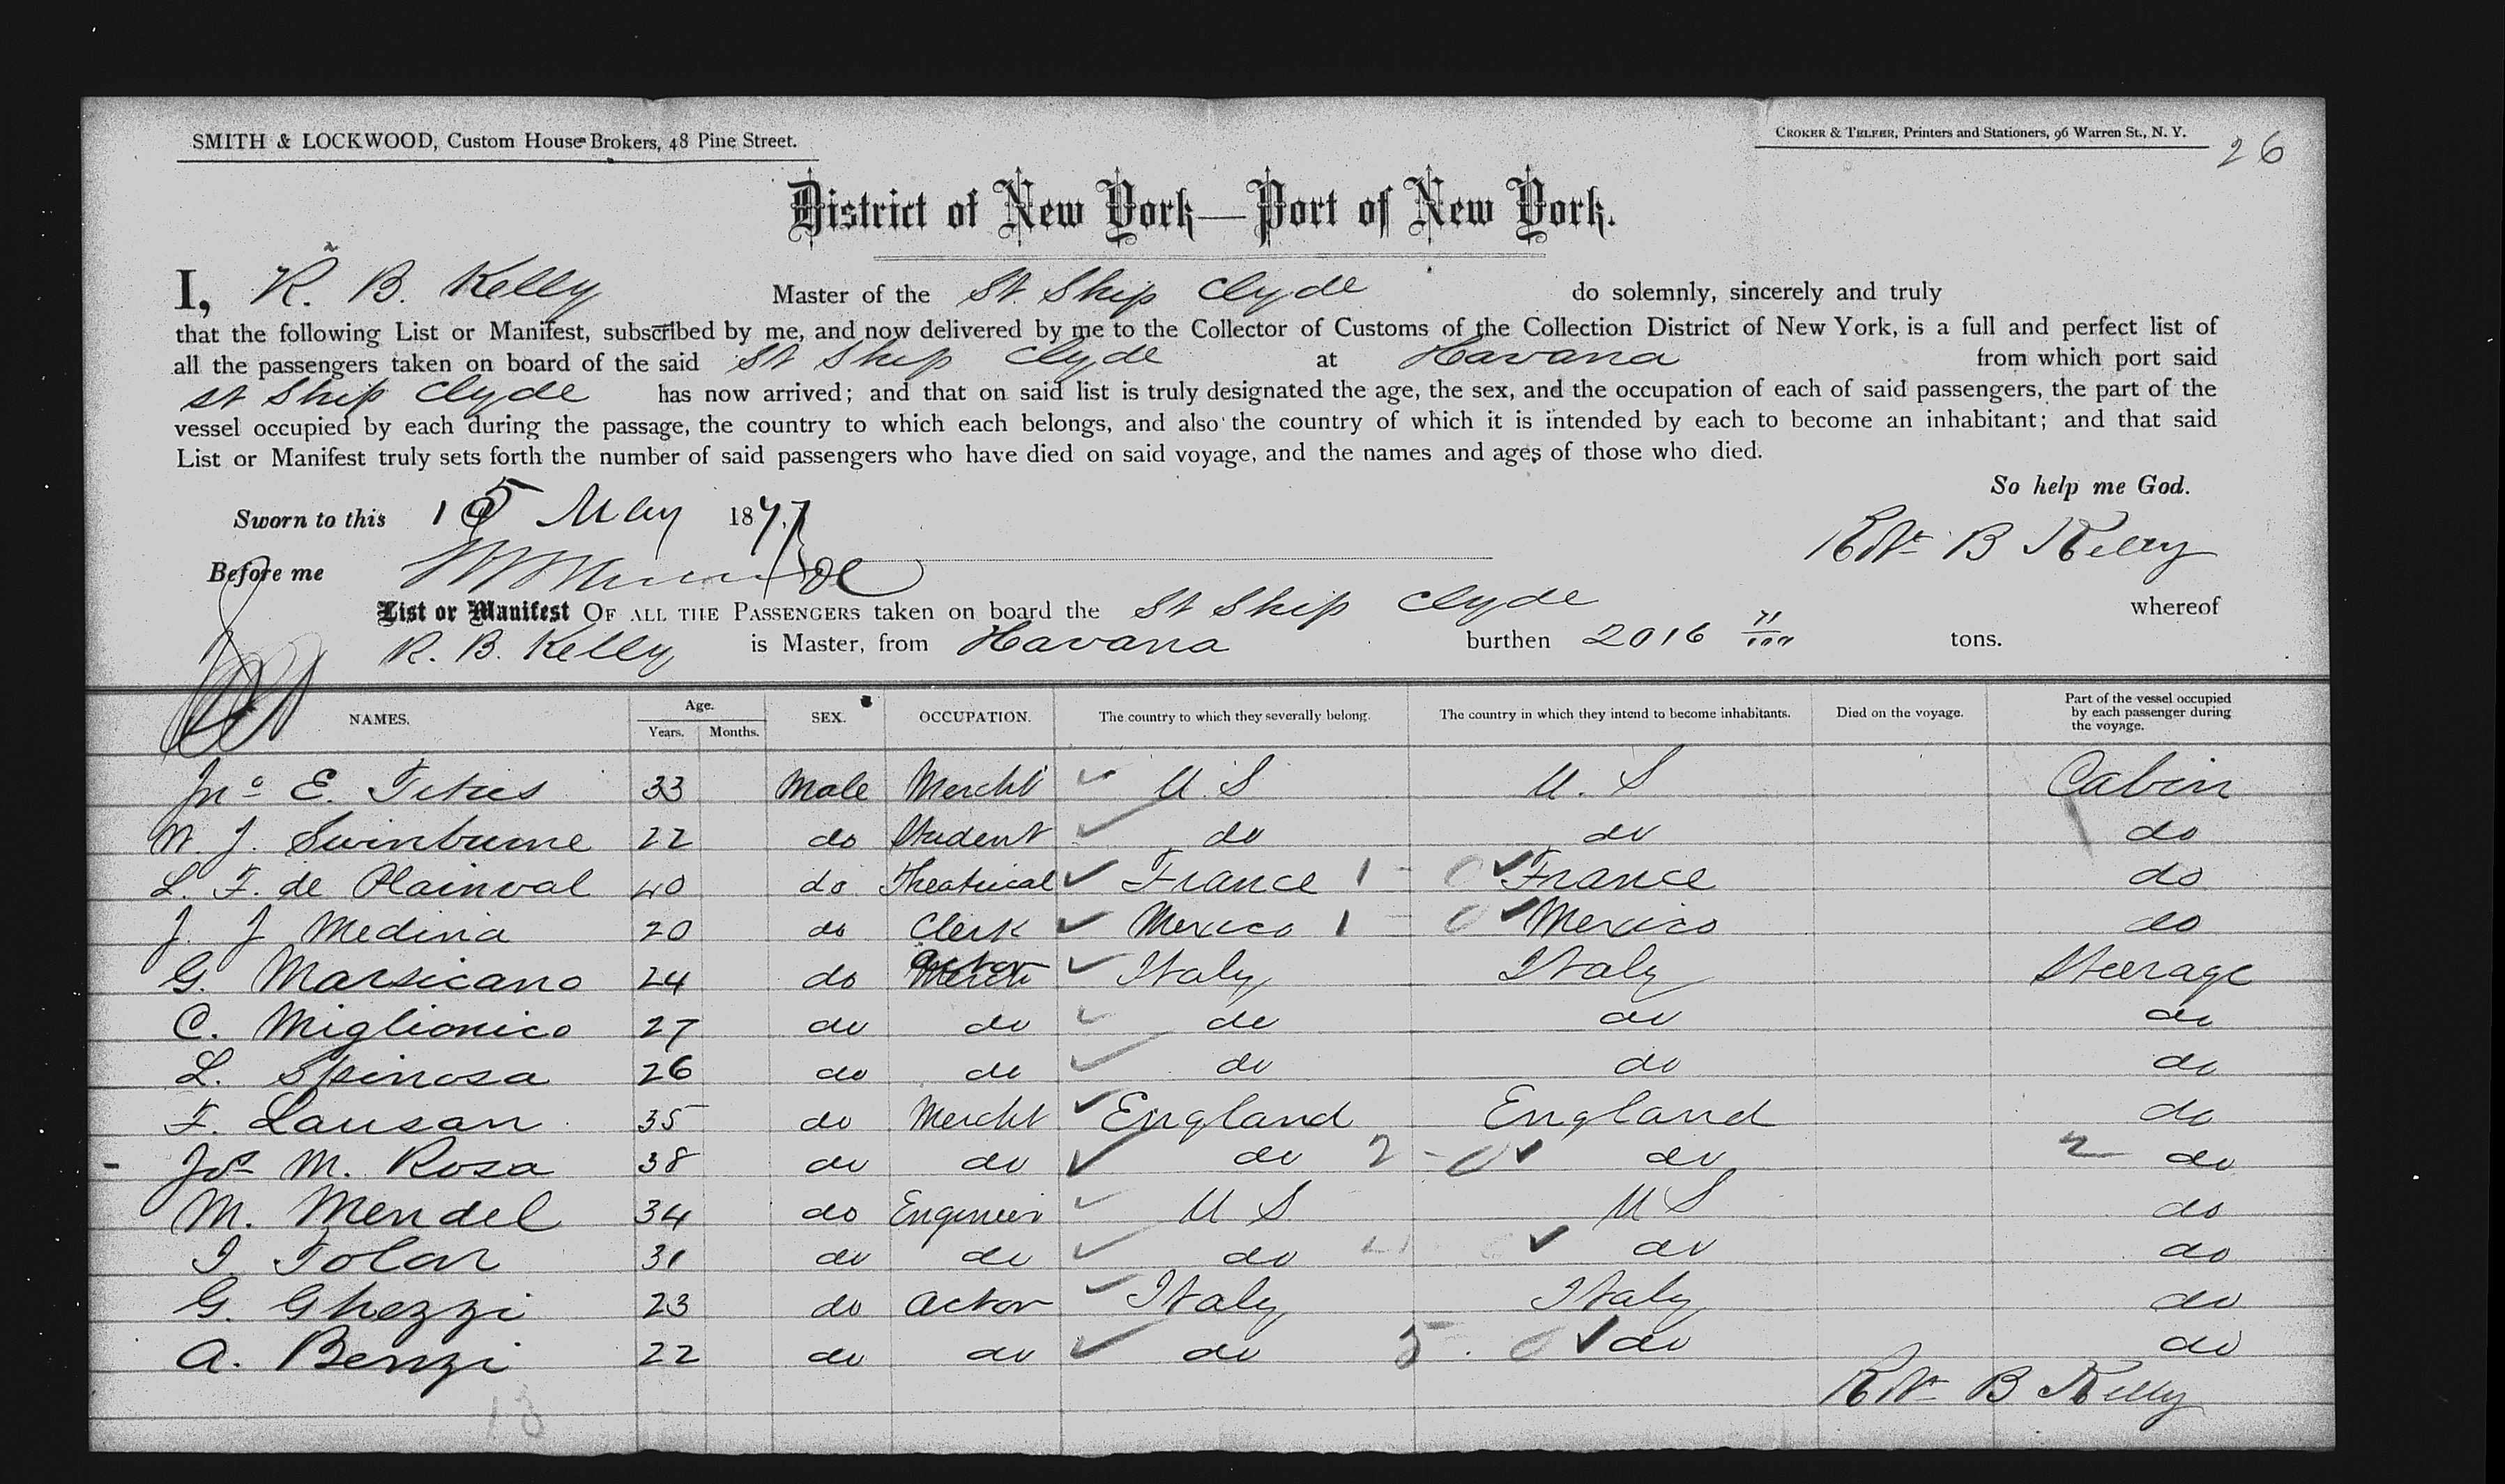 SMITH & LOCKWOOD, Custom House Brokers, 48 Pine Street.
CROKER & TELFER, Printers and Stationers, 96 Warren St., N. Y.
26
District of New York—Port of New York.
I, R. B. Kelly Master of the St. Ship Clyde do solemnly, sincerely and truly
that the following List or Manifest, subscribed by me, and now delivered by me to the Collector of Customs of the Collection District of New York, is a full and perfect list of
all the passengers taken on board of the said St Ship Clyde at Havana from which port said
St Ship Clyde has now arrived; and that on said list is truly designated the age, the sex, and the occupation of each of said passengers, the part of the
vessel occupied by each during the passage, the country to which each belongs, and also the country of which it is intended by each to become an inhabitant; and that said
List or Manifest truly sets forth the number of said passengers who have died on said voyage, and the names and ages of those who died.
So help me God.
Sworn to this 15 May 1877
Rbt B Kelly
Before me
List or Manifest OF ALL THE PASSENGERS taken on board the St Ship Clyde whereof
R. B. Kelly is Master, from Havana burthen 2016 71/100 tons.
NAMES. Age. Years. Months. SEX. OCCUPATION. The country to which they severally belong. The country in which they intend to become inhabitants. Died on the voyage. Part of the vessel occupied by each passenger during the voyage.
Jno E. Titus 33 Male Mercht U. S U. S Cabin
W. J. Swinburne 22 do Student do do do
L. F. de Plainval 40 do Theatrical France 1 - 0 France do
J. J Medina 20 do Clerk Mexico 1 - 0 Mexico do
G. Marsicano 24 do Actor Italy Italy Steerage
C. Miglionico 27 do do do do do
L. Spinosa 26 do do do do do
F. Lausan 35 do Mercht England England do
Jos M. Rosa 38 do do do 2 - 0 do 2 do
M. Mendel 34 do Engineer U S U S do
I. Tolon 31 do do do do do
G. Ghezzi 23 do Actor Italy Italy do
A. Benzi 22 do do do 5 . 0 do do
Rbt B Kelly
13